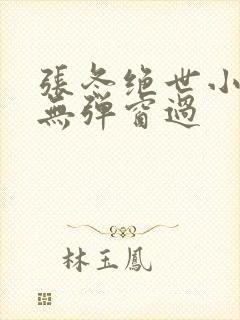 張冬绝世小
無弹窗過
林玉鳳